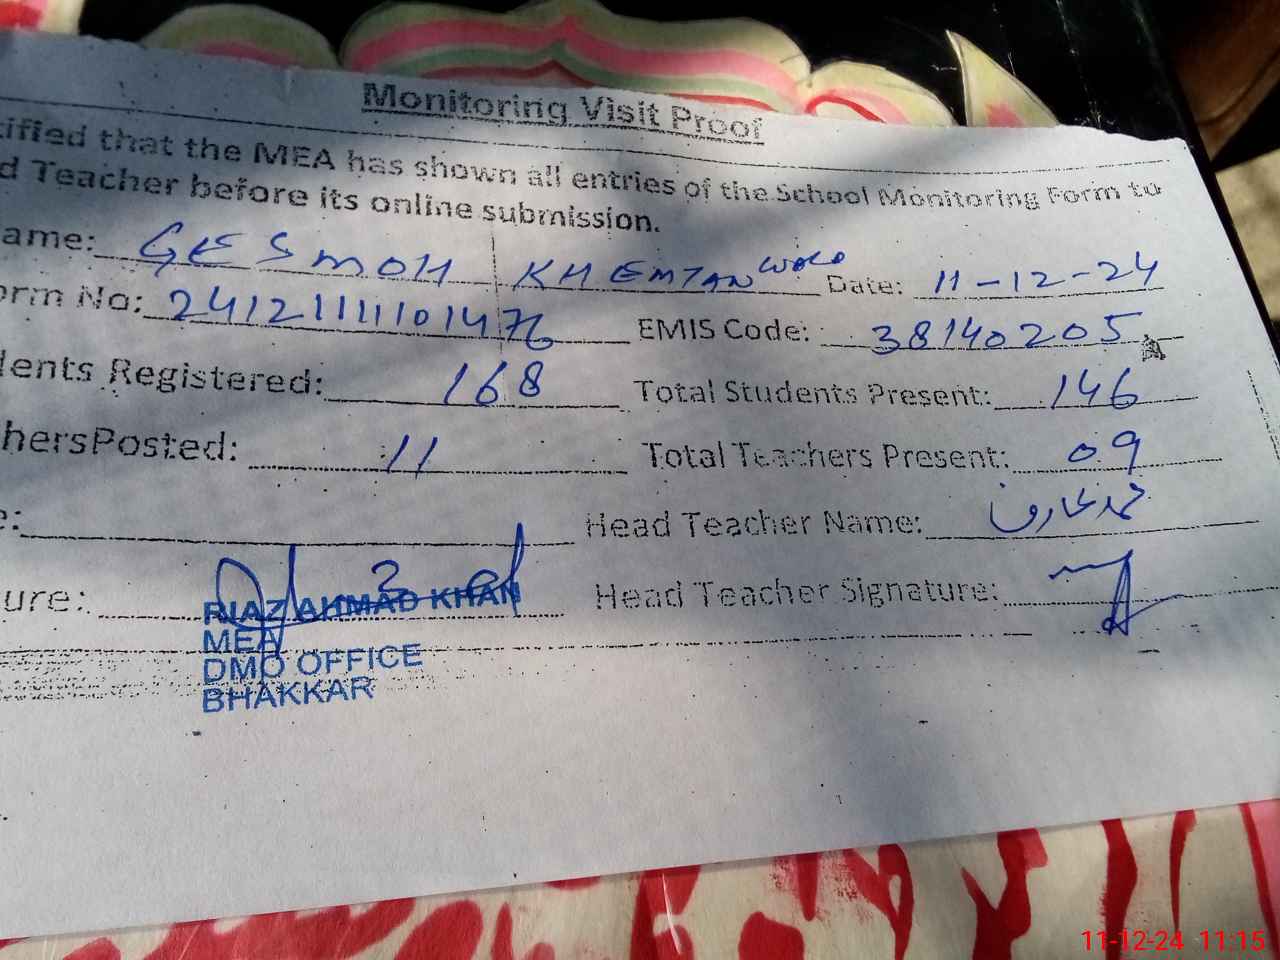 Monitoring Visit Proof
tified that the MEA has shown all entries of the School Monitoring Form to
d Teacher before its online submission.
ame: GES MOH KHEMTAN WALA Date: 11-12-24
orm No: 24121111101476 EMIS Code: 38140205
dents Registered: 168 Total Students Present: 146
hersPosted: 11 Total Teachers Present: 09
e: Head Teacher Name: محمد عارف
ure: Head Teacher Signature:
RIAZ AHMAD KHAN
MEA
DMO OFFICE
BHAKKAR
11-12-24 11:15